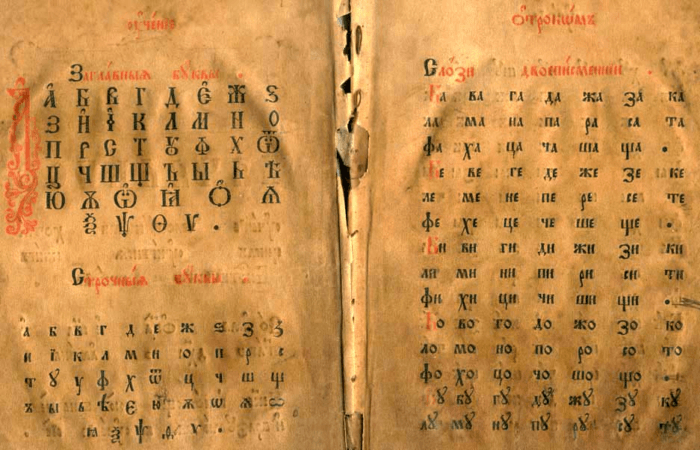 Ѻтрокѡмъ
Заглавныѧ бꙋквы .
А Б В Г Д Є Ж Ѕ
З И І К Л М Н О
П Р С Т Ꙋ Ф Х Ѿ
Ц Ч Ш Щ Ъ Ы Ь Ѣ
Ю Ѫ Ѡ Ꙗ Ѻ Ѧ
Ѯ Ѱ Ѳ Ѵ .
Строчныѧ бꙋквы
а б в г д е ж ѕ З з
и ї к л м н о п р с
т ꙋ у ф х ѿ ц ч ш щ
ъ ы ь ѣ є ю ѫ ѡ ѧ
ѯ ѱ
Слоѕи двоеписменнїи .
Ба ва га да жа за ка
ла ма на па ра са та
фа ха ца ча ша ща .
Бе ве ге де же зе ке
ле ме не пе ре се те
фе хе це че ше ще .
Би ви ги ди жи зи ки
ли ми ни пи ри си ти
фи хи ци чи ши щи .
Бо во го до жо зо ко
ло мо но по ро со то
фо хо цо чо шо що .
Бꙋ вꙋ гꙋ дꙋ жꙋ зꙋ кꙋ
лꙋ мꙋ нꙋ пꙋ рꙋ сꙋ тꙋ